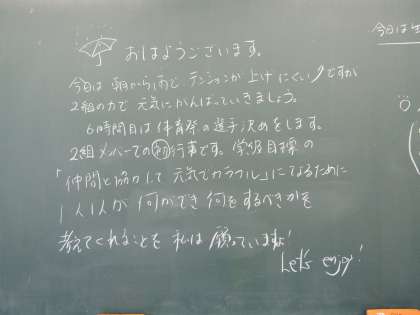 おはようございます。
今日は朝から雨でテンションが上げにくいですが
2組の力で元気にがんばっていきましょう。
6時間目は体育祭の選手決めをします。
2組メンバーでの初行事です。学級目標の
「仲間と協力して元気でカラフル」になるために
1人1人が何ができ何をするべきかを
考えてくれることを私は願っていますよ!
Let's enjoy!
今日は